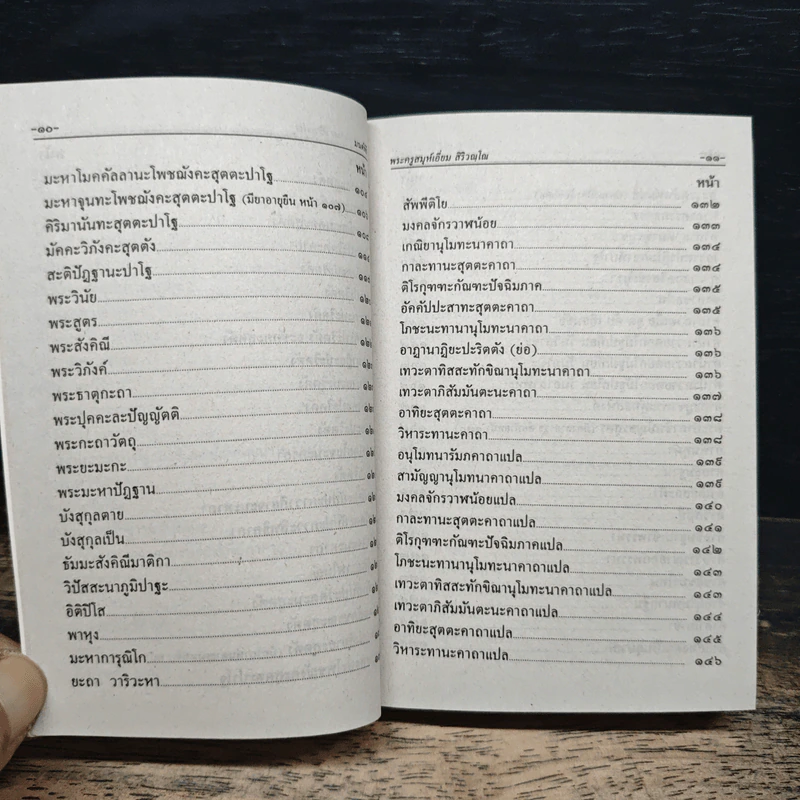 -๑๐-
หน้า
มะหาโมคคัลลานะโพชฌังคะสุตตะปาโฐ
มะหาจุนทะโพชฌังคะสุตตะปาโฐ (มียาอายุยืน หน้า ๑๐๗)
คิริมานันทะสุตตะปาโฐ
มัคคะวิภังคะสุตตัง
สะติปัฏฐานะปาโฐ
พระวินัย
พระสูตร
พระสังคิณี
พระวิภังค์
พระธาตุกะถา
พระปุคคะละปัญญัตติ
พระกะถาวัตถุ
พระยะมะกะ
พระมะหาปัฏฐาน
บังสุกุลตาย
บังสุกุลเป็น
ธัมมะสังคิณีมาติกา
วิปัสสะนาภูมิปาฐะ
อิติปิโส
พาหุง
มะหาการุณิโก
ยะถา วาริวะหา
พระครูสมุห์เอี่ยม สิริวณฺโณ -๑๑-
หน้า
สัพพีติโย ๑๓๒
มงคลจักรวาฬน้อย ๑๓๓
เกณิยานุโมทะนาคาถา ๑๓๔
กาละทานะสุตตะคาถา ๑๓๔
ติโรกุฑฑะกัณฑะปัจฉิมภาค ๑๓๕
อัคคัปปะสาทะสุตตะคาถา ๑๓๕
โภชะนะทานานุโมทะนาคาถา ๑๓๖
อาฏานาฏิยะปะริตตัง (ย่อ) ๑๓๖
เทวะตาทิสสะทักขิณานุโมทะนาคาถา ๑๓๖
เทวะตาภิสัมมันตะนะคาถา ๑๓๗
อาทิยะสุตตะคาถา ๑๓๘
วิหาระทานะคาถา ๑๓๘
อนุโมทนารัมภคาถาแปล ๑๓๙
สามัญญานุโมทนาคาถาแปล ๑๓๙
มงคลจักรวาฬน้อยแปล ๑๔๐
กาละทานะสุตตะคาถาแปล ๑๔๑
ติโรกุฑฑะกัณฑะปัจฉิมภาคแปล ๑๔๒
โภชะนะทานานุโมทะนาคาถาแปล ๑๔๓
เทวะตาทิสสะทักขิณานุโมทะนาคาถาแปล ๑๔๓
เทวะตาภิสัมมันตะนะคาถาแปล ๑๔๔
อาทิยะสุตตะคาถาแปล ๑๔๕
วิหาระทานะคาถาแปล ๑๔๖